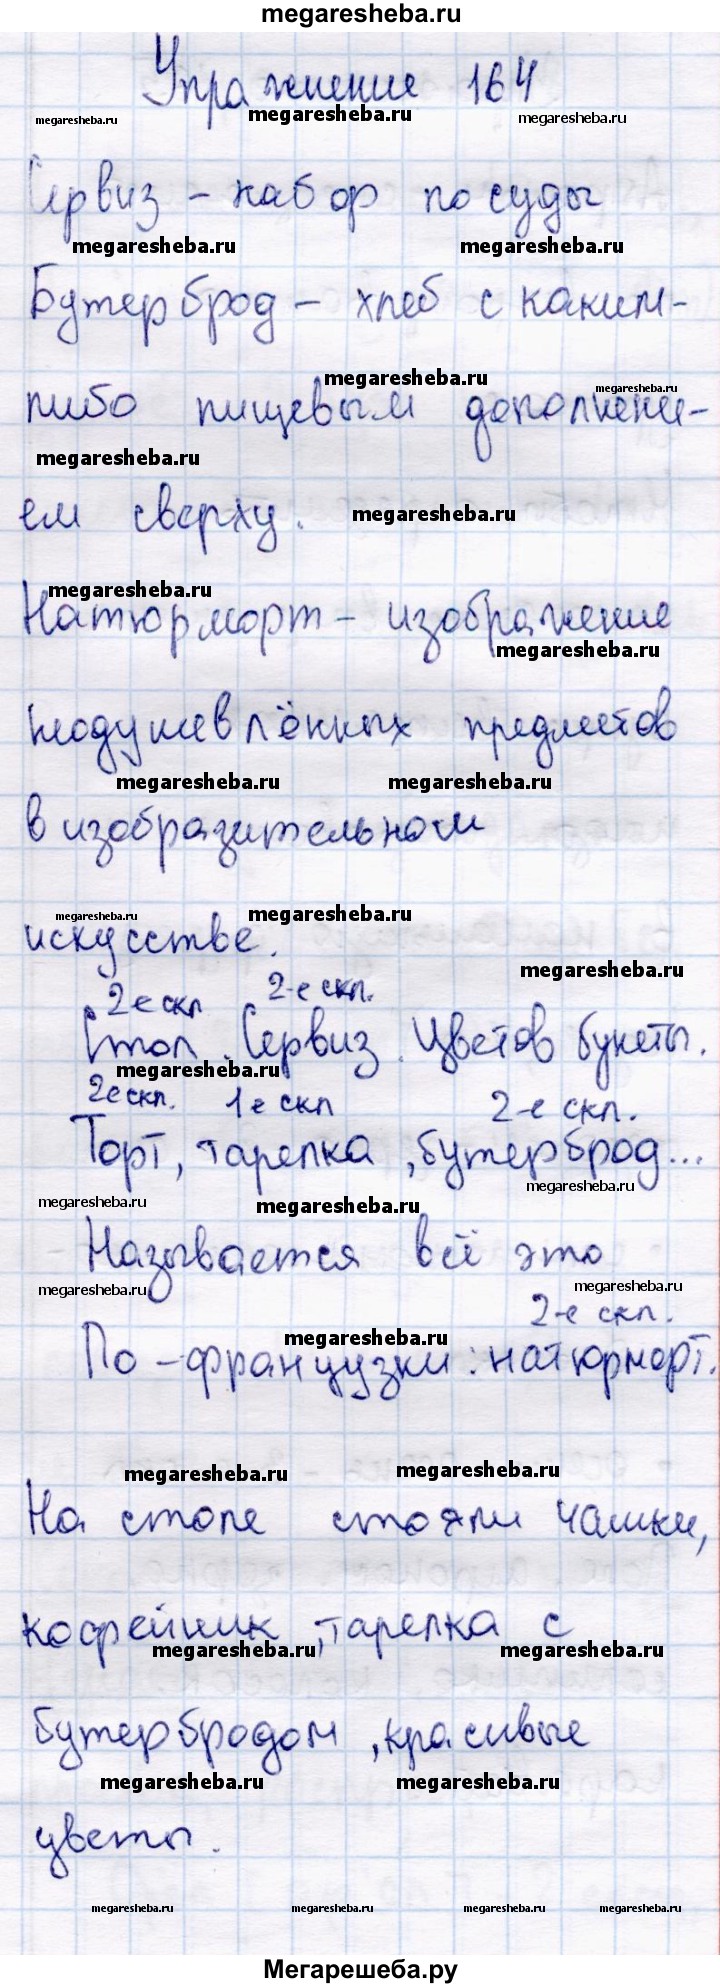 megaresheba.ru
Упражнение 164
megaresheba.ru megaresheba.ru megaresheba.ru
Сервиз - набор посуды
megaresheba.ru megaresheba.ru
Бутерброд - хлеб с каким-
megaresheba.ru megaresheba.ru
либо пищевым дополнени-
megaresheba.ru
ем сверху.
megaresheba.ru
megaresheba.ru
Натюрморт - изображение
megaresheba.ru
неодушевлённых предметов
megaresheba.ru megaresheba.ru
в изобразительном
megaresheba.ru megaresheba.ru
искусстве.
megaresheba.ru
2-е скл 2-е скл.
Стол. Сервиз. Цветов букеты.
megaresheba.ru
2е скл. 1е скл 2-е скл.
Торт, тарелка, бутерброд...
megaresheba.ru
megaresheba.ru megaresheba.ru
Называется всё это
megaresheba.ru megaresheba.ru
2-е скл.
megaresheba.ru
По-французки: натюрморт.
megaresheba.ru megaresheba.ru
На столе стояли чашки,
кофейник, тарелка с
megaresheba.ru megaresheba.ru
бутербродом, красивые
megaresheba.ru megaresheba.ru
цветы.
megaresheba.ru megaresheba.ru megaresheba.ru megaresheba.ru
Мегарешеба.ру